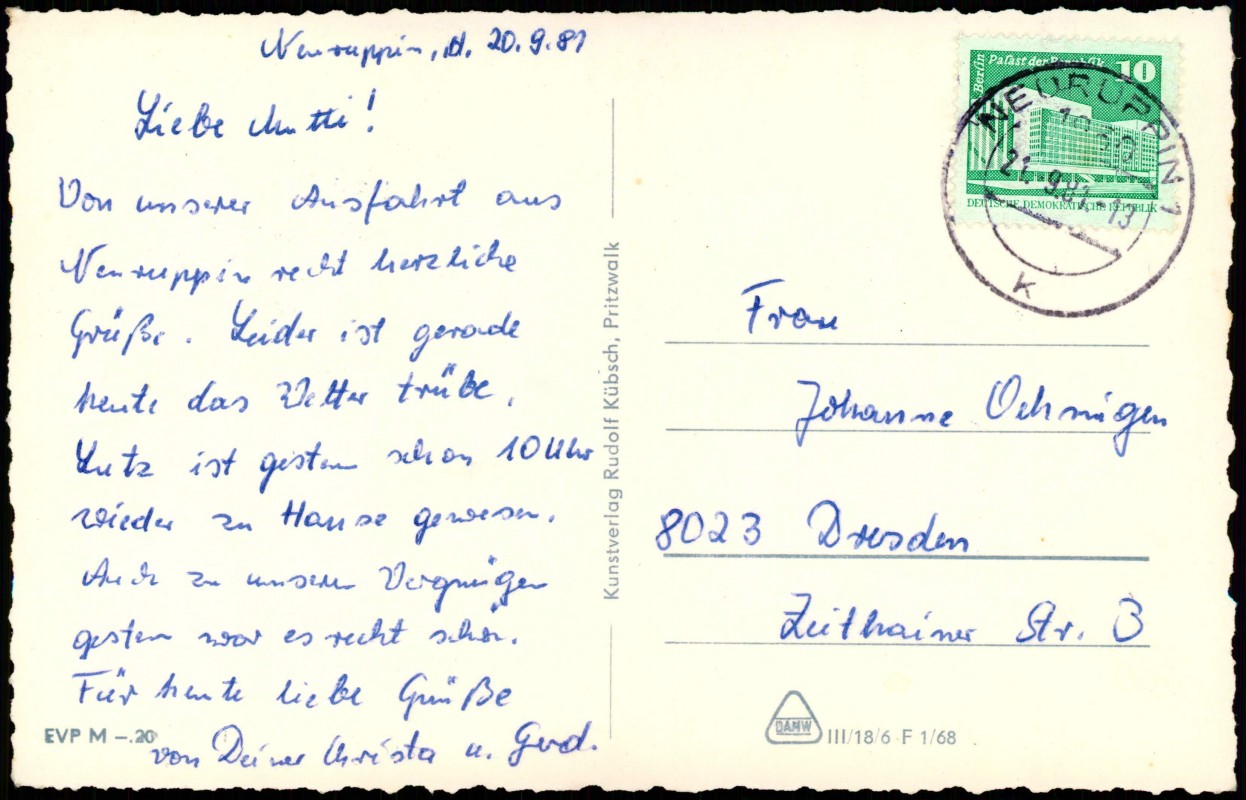 Neuruppin, d. 20.9.81
Liebe Mutti!
Von unserer Ausfahrt aus
Neuruppin recht herzliche
Grüße. Leider ist gerade
heute das Wetter trübe.
Lutz ist gestern schon 10 Uhr
wieder zu Hause gewesen.
Auch zu unserem Vergnügen
gestern war es recht schön.
Für heute liebe Grüße
von Deiner Christa u. Gerd.
EVP M –.20
Kunstverlag Rudolf Kübsch, Pritzwalk
Berlin
Palast der Republik
10
DEUTSCHE DEMOKRATISCHE REPUBLIK
NEURUPPIN 1
21.9.81-13
k
Frau
Johanne Oehmigen
8023 Dresden
Zeithainer Str. 3
DAMW
III/18/6 F 1/68